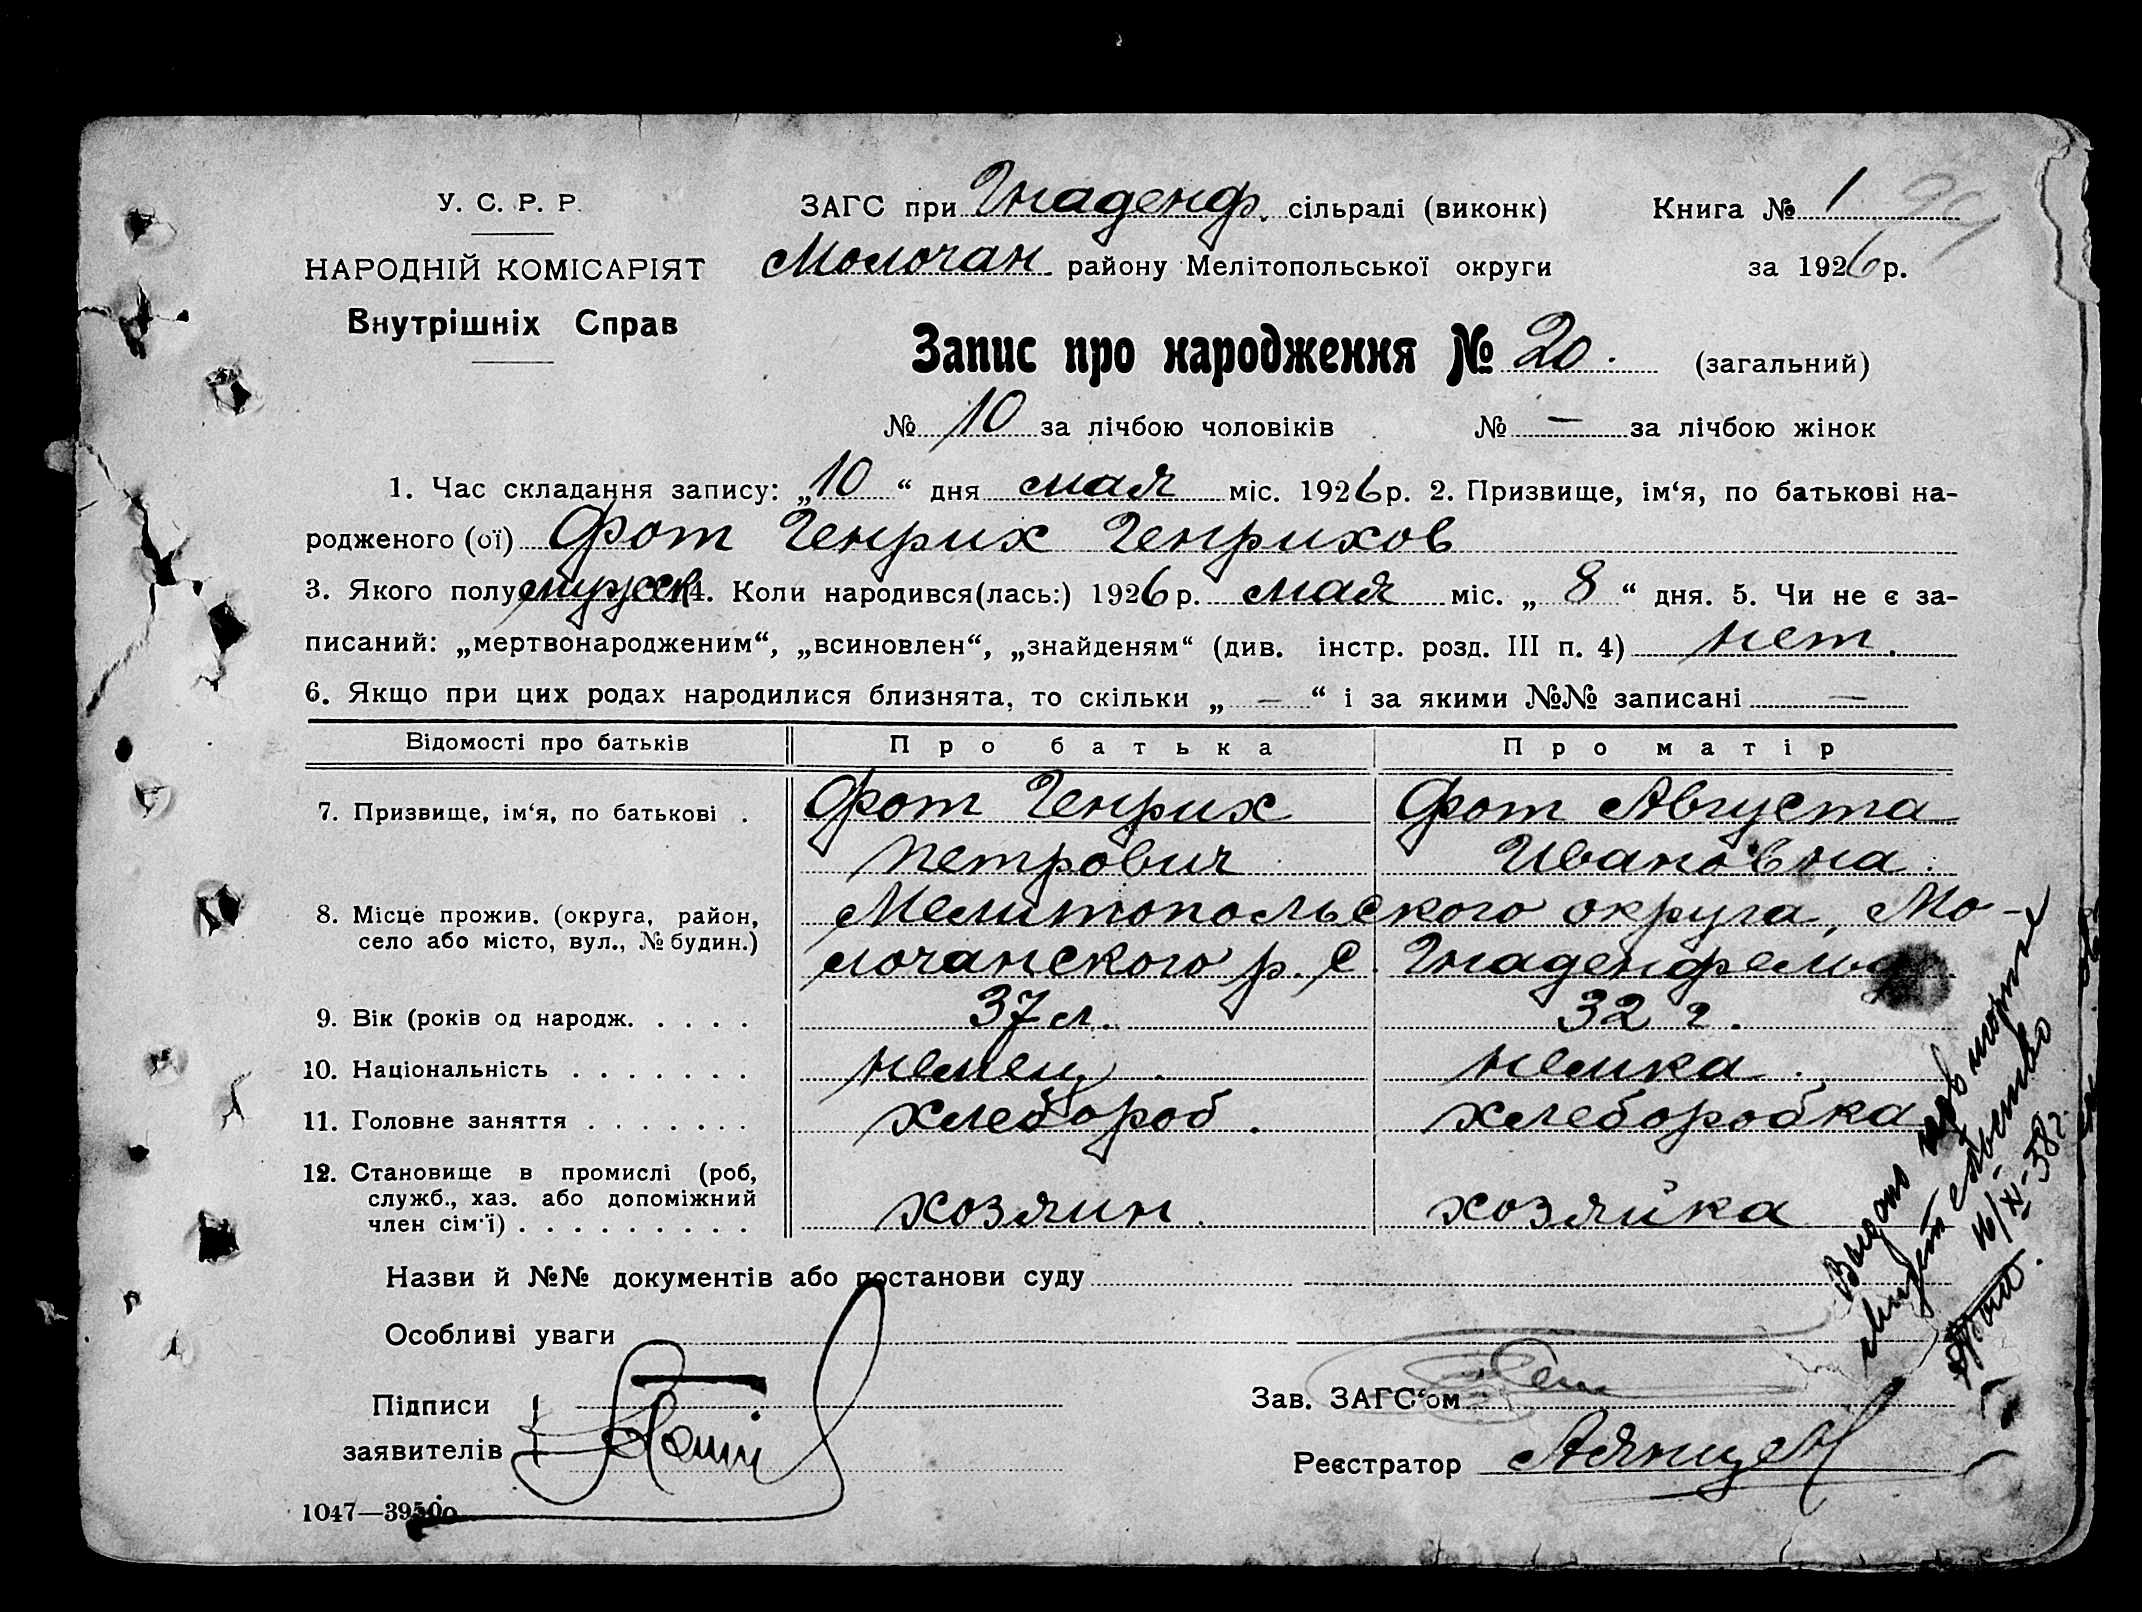 У. С. Р. Р.
НАРОДНІЙ КОМІСАРІЯТ
Внутрішніх Справ
ЗАГС при Гнаденф. сільраді (виконк)
Молочан. району Мелітопольської округи
Книга № 1
94
за 1926 р.
Запис про народження № 20. (загальний)
№ 10 за лічбою чоловіків № — за лічбою жінок
1. Час складання запису: „10“ дня мая міс. 1926 р. 2. Призвище, ім‘я, по батькові на-
родженого (ої) Фот Генрих Генрихов
3. Якого полу мужск 4. Коли народився(лась:) 1926 р. мая міс. „8“ дня. 5. Чи не є за-
писаний: „мертвонародженим“, „всиновлен“, „знайденям“ (див. інстр. розд. III п. 4) нет.
6. Якщо при цих родах народилися близнята, то скільки „—“ і за якими №№ записані —
Відомості про батьків Про батька Про матір
7. Призвище, ім‘я, по батькові . Фот Генрих Фот Августа
Петрович Ивановна.
8. Місце прожив. (округа, район, Мелитопольского округа, Мо-
село або місто, вул., № будин.) лочанского р. с. Гнаденфельд.
9. Вік (років од народж. . . . . 37 л. 32 г.
10. Національність . . . . . . . немец немка.
11. Головне заняття . . . . . . . хлебороб. хлеборобка
12. Становище в промислі (роб,
служб., хаз. або допоміжний
член сім‘ї) . . . . . . . . . хозяин. хозяйка
Назви й №№ документів або постанови суду
Особливі уваги
Підписи
заявителів
Зав. ЗАГС‘ом
Реєстратор
1047—3950
Выдано
16/XI-38г.